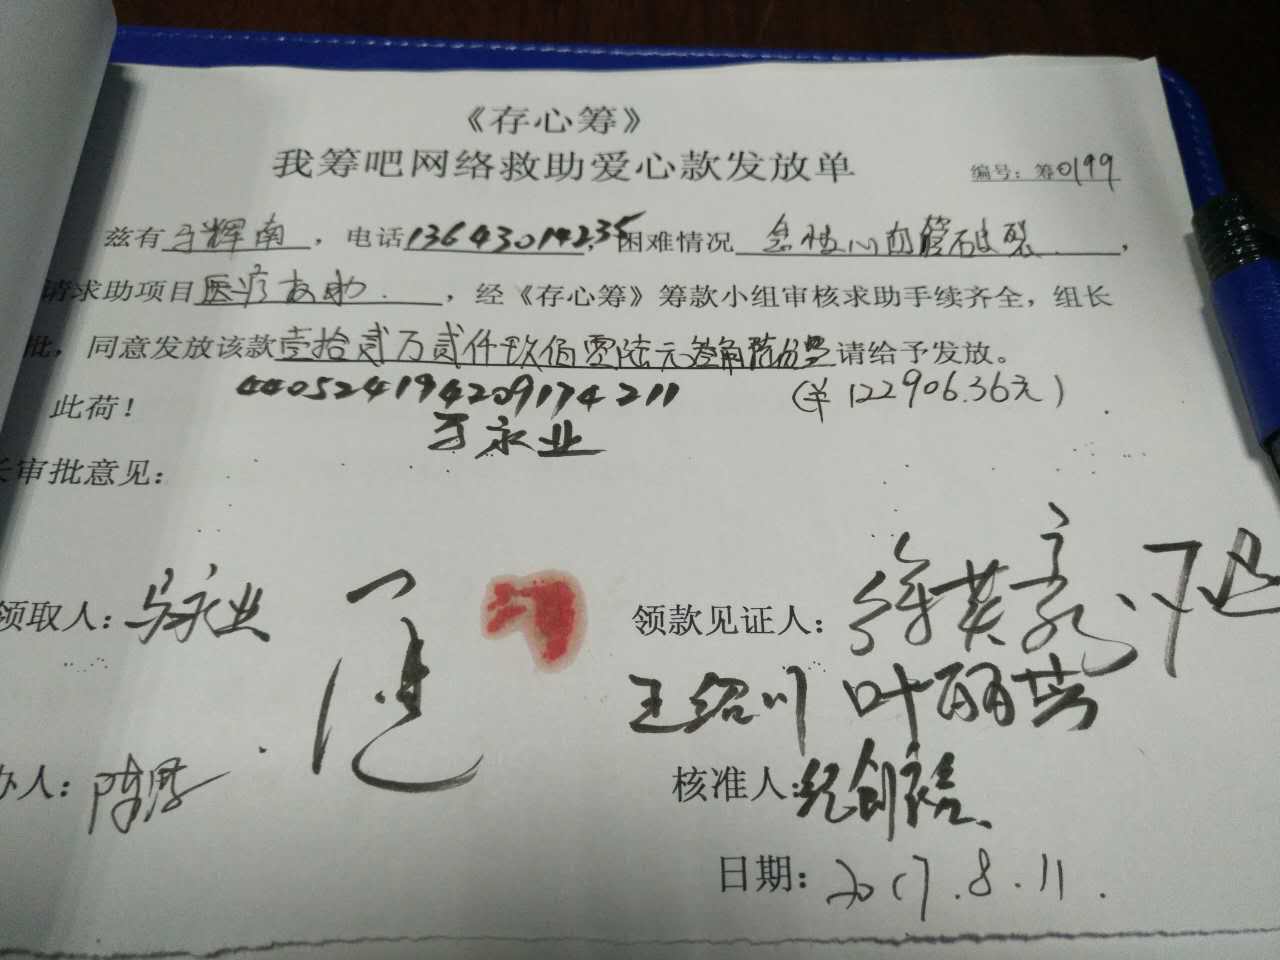 《存心筹》
我筹吧网络救助爱心款发放单
编号：筹0199
兹有马辉南，电话13643014235困难情况急性心血管破裂，
请求助项目医疗救助，经《存心筹》筹款小组审核求助手续齐全，组长
批，同意发放该款壹拾贰万贰仟玖佰零陆元叁角陆分正请给予发放。
440524194209174211 (¥122906.36元)
此荷！
马永业
长审批意见：
领取人：马永业
领款见证人：徐英豪、
王绍川 叶丽英
办人：陈
核准人：纪创
日期：2017.8.11.